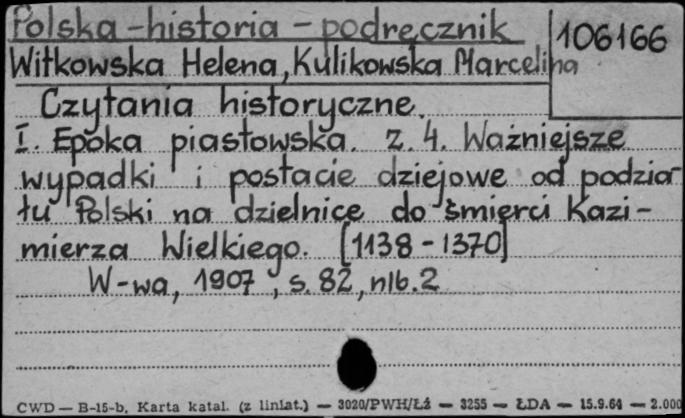 Polska-historia - podręcznik
106166
Witkowska Helena, Kulikowska Marcelina
Czytania historyczne.
I. Epoka piastowska. Z. 4. Ważniejsze
wypadki i postacie dziejowe od podzia-
łu Polski na dzielnice do śmierci Kazi-
mierza Wielkiego. [1138-1370]
W-wa, 1907, s. 82, nlb. 2
CWD — B-15-b, Karta katal. (z liniat.) — 3020/PWH/Łź — 3255 — ŁDA — 15.9.64 — 2.000